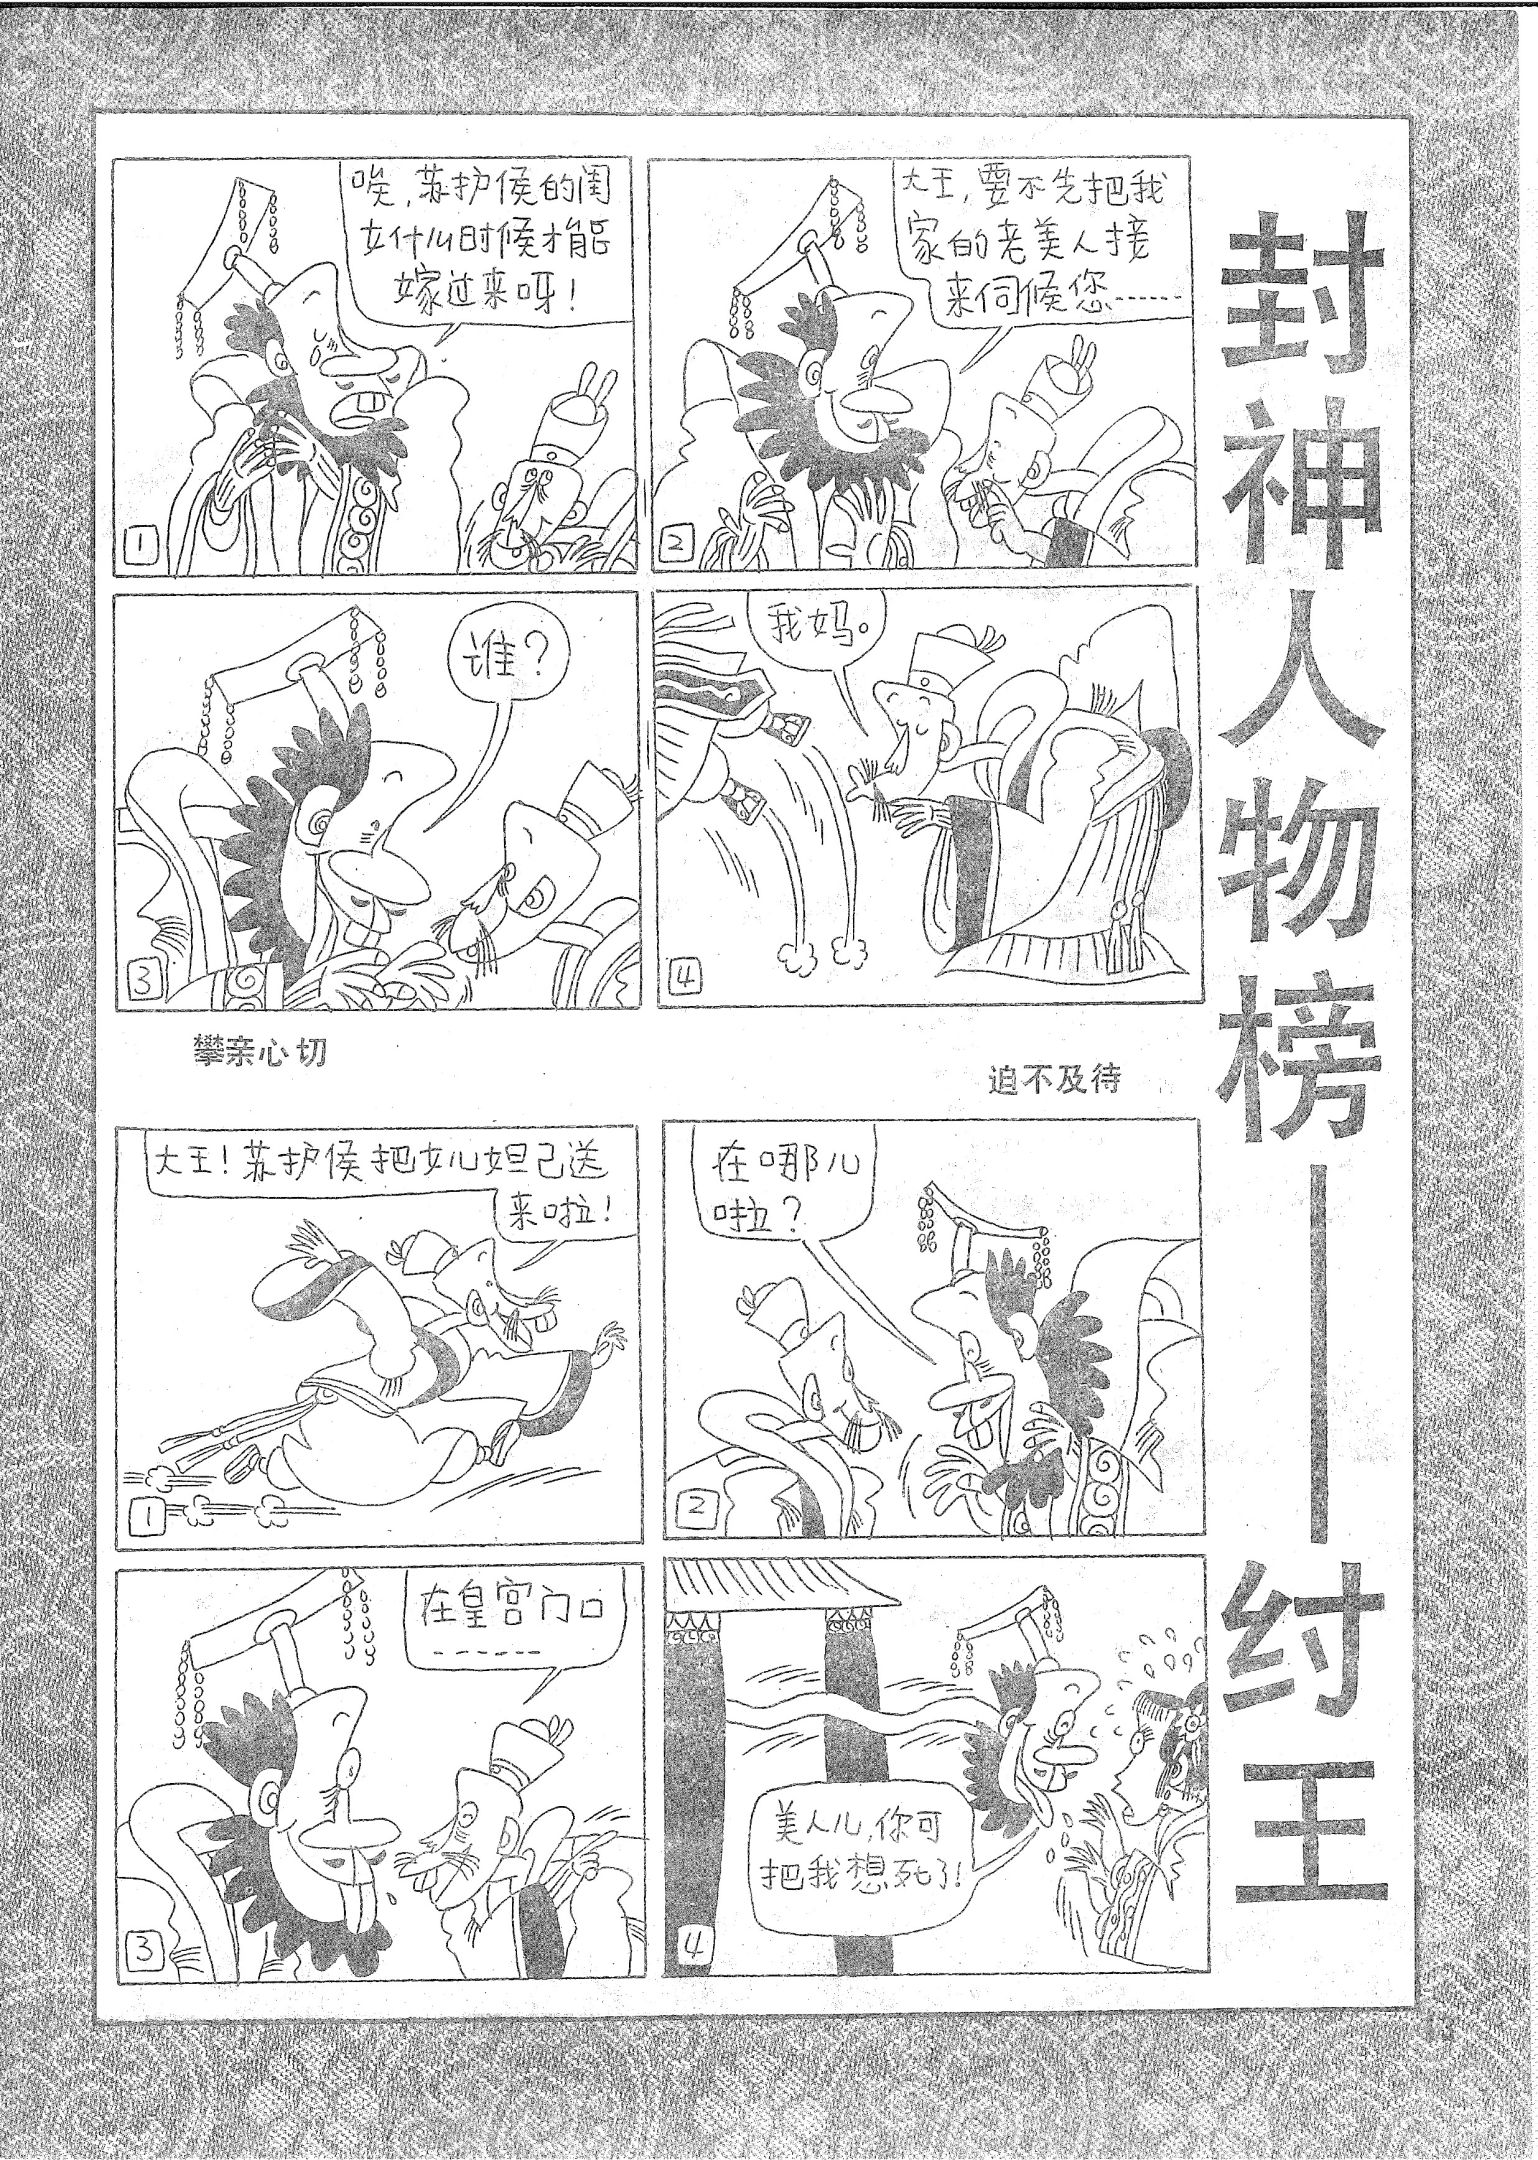 封神人物榜——纣王
唉,苏护侯的闺
女什么时候才能
嫁过来呀!
1
大王,要不先把我
家的老美人接
来伺候您------
2
谁?
3
我妈。
4
攀亲心切
迫不及待
大王!苏护侯把女儿妲己送
来啦!
1
在哪儿
啦?
2
在皇宫门口
------
3
美人儿,你可
把我想死了!
4